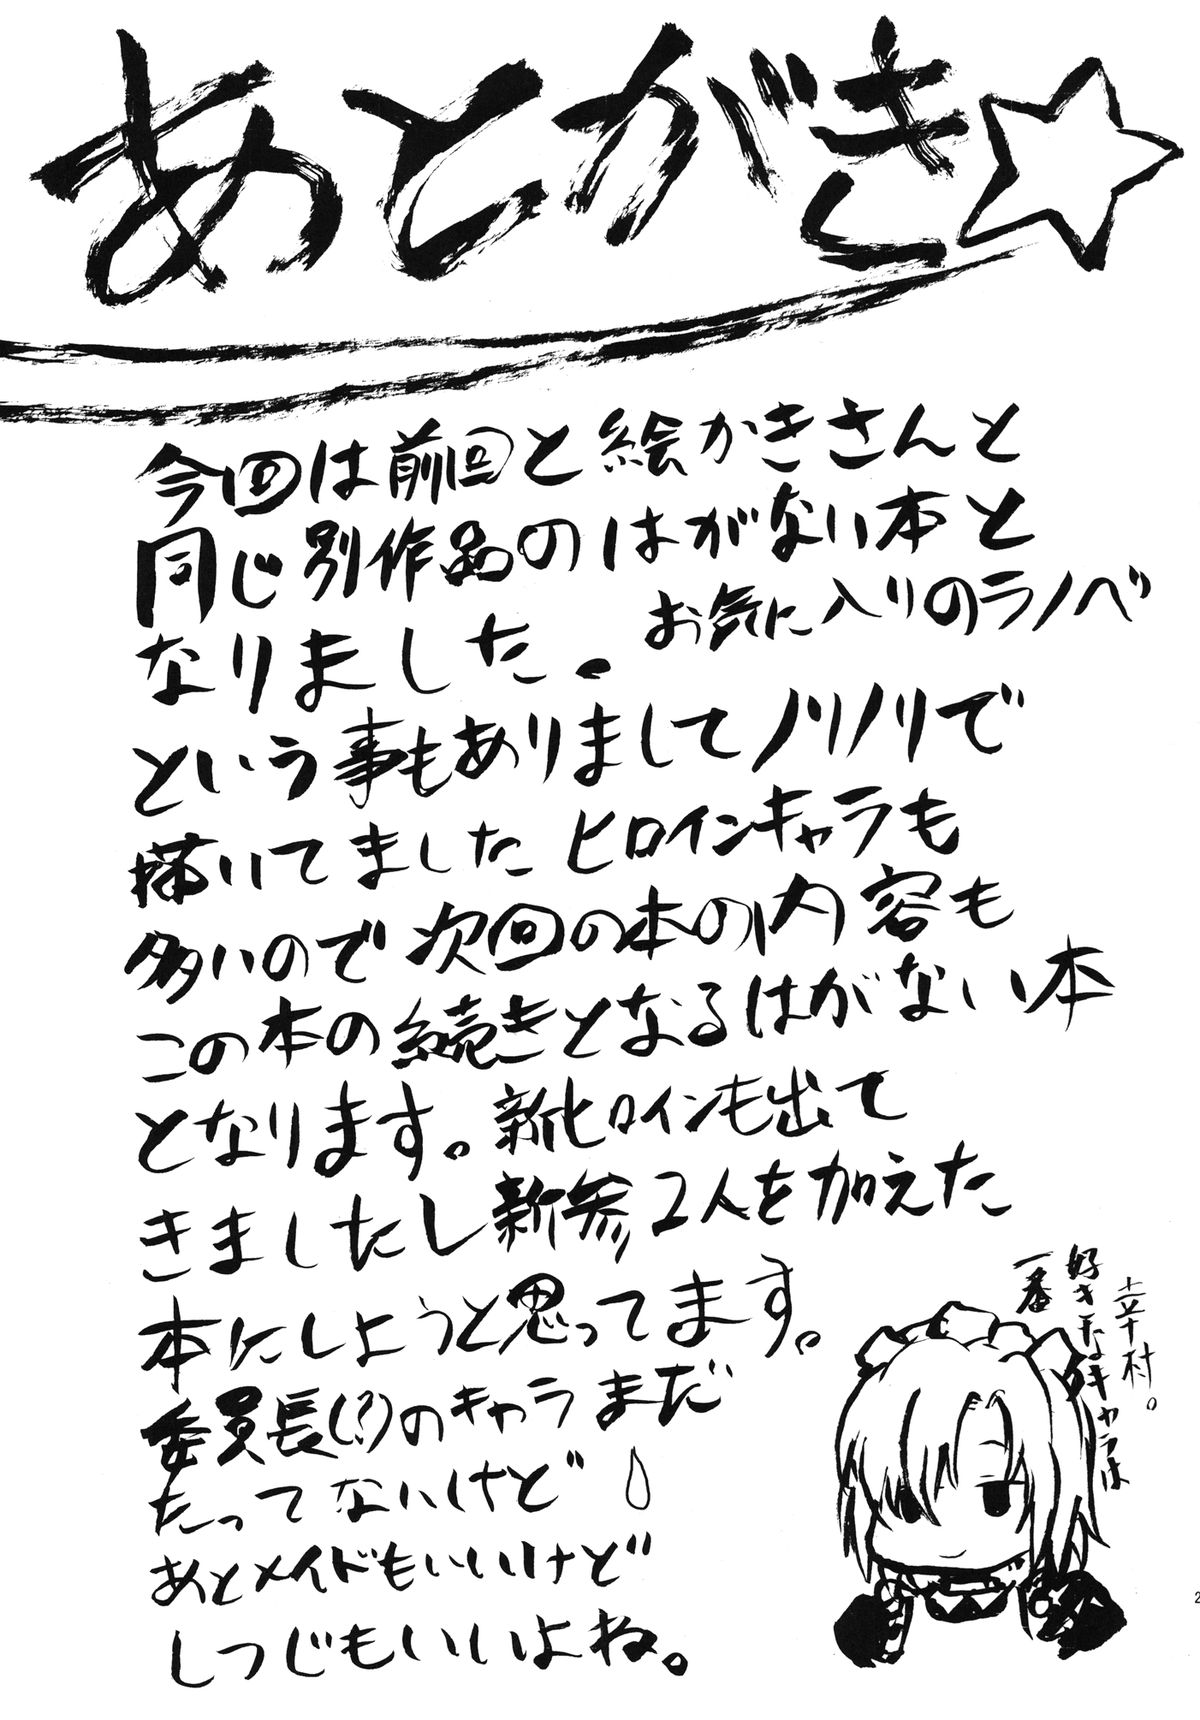 あとがき☆
今回は前回と絵かきさんと
同じ別作品のはがない本と
なりました。お気に入りのラノベ
という事もありましてノリノリで
描いてました ヒロインキャラも
多いので次回の本の内容も
この本の続きとなるはがない本
となります。新ヒロインも出て
きましたし新参2人を加えた
本にしようと思ってます。
委員長(?)のキャラまだ
たってないけど
あとメイドもいいけど
しつじもいいよね。
一番
好きなキャラは
幸村。
2